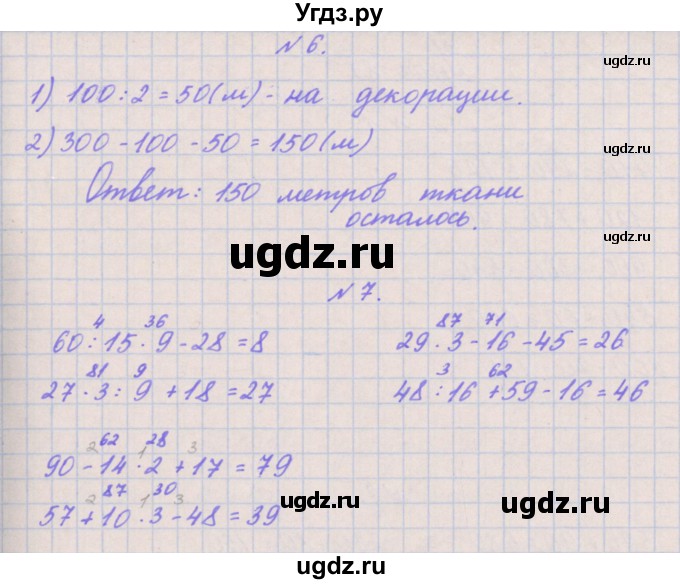 Угдз.ру
ugdz.ru
№ 6.
1) 100 : 2 = 50 (м) - на декорации.
ugdz.ru
2) 300 - 100 - 50 = 150 (м)
Ответ: 150 метров ткани
осталось.
ugdz.ru
ugdz.ru
№ 7.
4 36
60 : 15 · 9 - 28 = 8
87 71
29 · 3 - 16 - 45 = 26
ugdz.ru
81 9
27 · 3 : 9 + 18 = 27
3 62
48 : 16 + 59 - 16 = 46
2 62 1 28 3
90 - 14 · 2 + 17 = 79
ugdz.ru
2 87 1 30 3
57 + 10 · 3 - 48 = 39
ugdz.ru
ugdz.ru